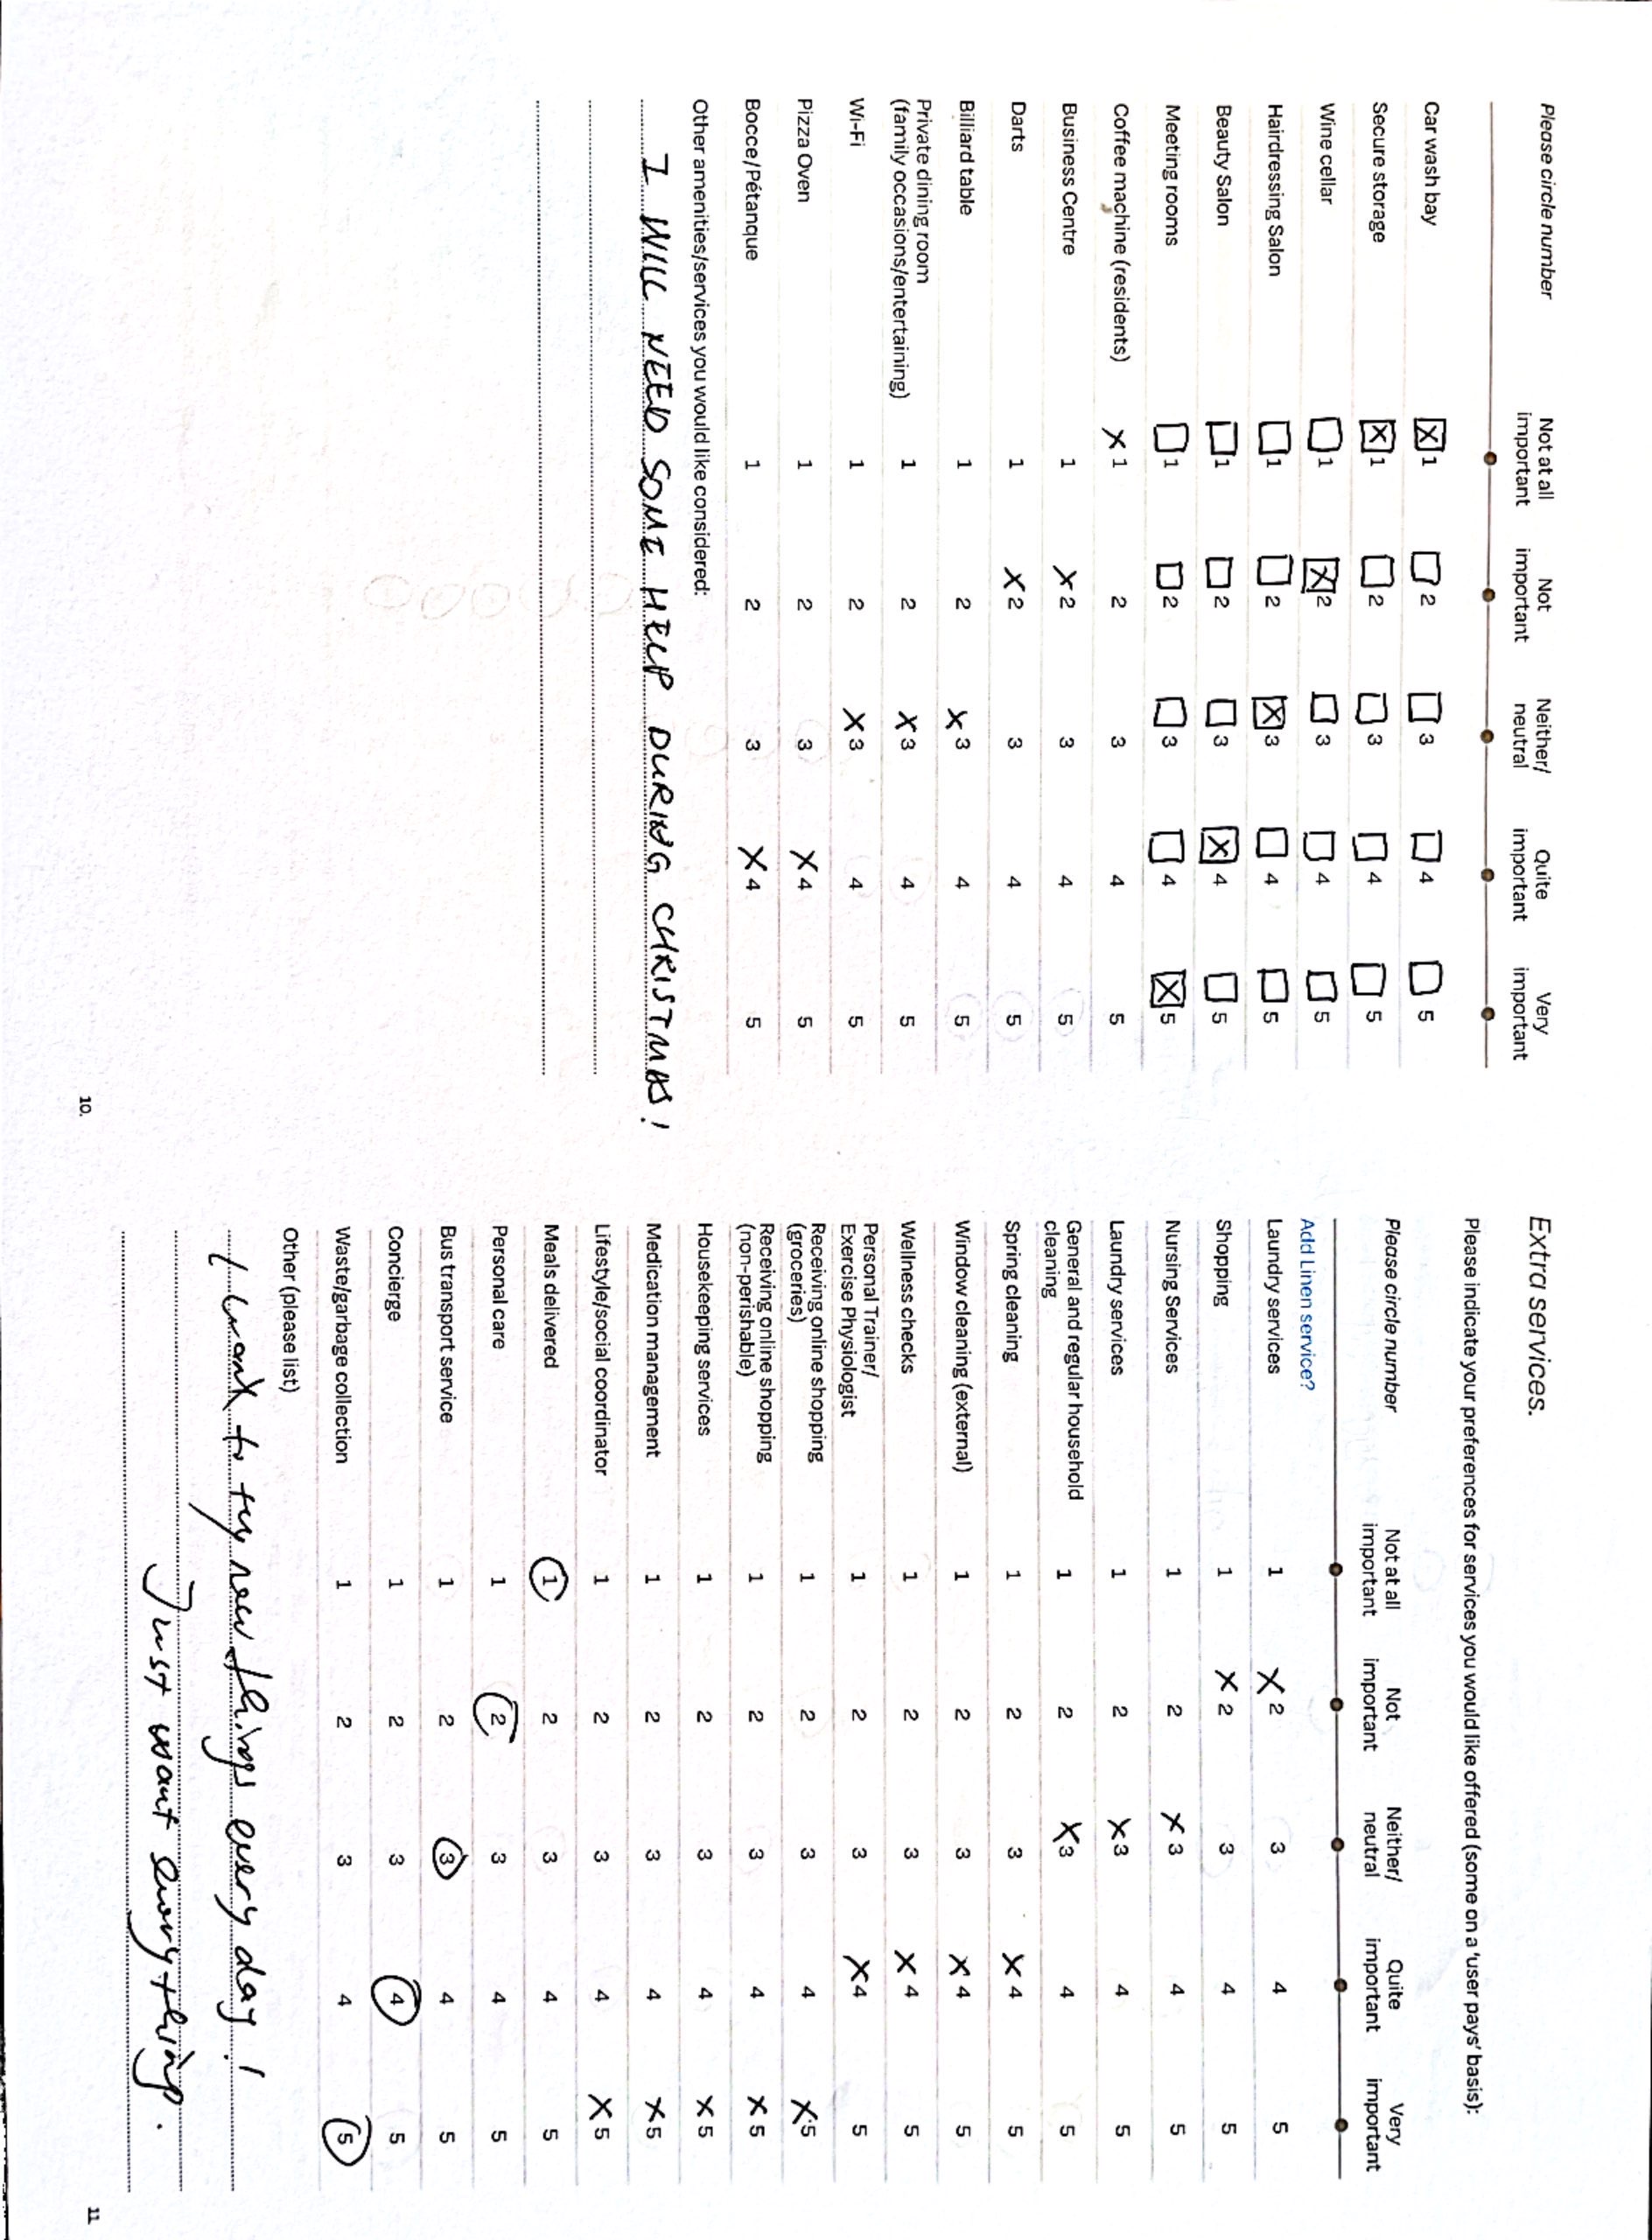 Please circle number Not at all important Not important Neither/ neutral Quite important Very important
Car wash bay X 1 2 3 4 5
Secure storage X 1 2 3 4 5
Wine cellar 1 X 2 3 4 5
Hairdressing Salon 1 2 X 3 4 5
Beauty Salon 1 2 3 X 4 5
Meeting rooms 1 2 3 4 X 5
Coffee machine (residents) X 1 2 3 4 5
Business Centre 1 X 2 3 4 5
Darts 1 X 2 3 4 5
Billiard table 1 2 X 3 4 5
Private dining room
(family occasions/entertaining) 1 2 X 3 4 5
Wi-Fi 1 2 X 3 4 5
Pizza Oven 1 2 3 X 4 5
Bocce/Pétanque 1 2 3 X 4 5
Other amenities/services you would like considered:
I WILL NEED SOME HELP DURING CHRISTMAS!
10.
Extra services.
Please indicate your preferences for services you would like offered (some on a 'user pays' basis):
Please circle number Not at all important Not important Neither/ neutral Quite important Very important
Add Linen service?
Laundry services 1 X 2 3 4 5
Shopping 1 X 2 3 4 5
Nursing Services 1 2 X 3 4 5
Laundry services 1 2 X 3 4 5
General and regular household
cleaning 1 2 X 3 4 5
Spring cleaning 1 2 3 X 4 5
Window cleaning (external) 1 2 3 X 4 5
Wellness checks 1 2 3 X 4 5
Personal Trainer/
Exercise Physiologist 1 2 3 X 4 5
Receiving online shopping
(groceries) 1 2 3 4 X 5
Receiving online shopping
(non-perishable) 1 2 3 4 X 5
Housekeeping services 1 2 3 4 X 5
Medication management 1 2 3 4 X 5
Lifestyle/social coordinator 1 2 3 4 X 5
Meals delivered 1 2 3 4 5
Personal care 1 2 3 4 5
Bus transport service 1 2 3 4 5
Concierge 1 2 3 4 5
Waste/garbage collection 1 2 3 4 5
Other (please list)
I want to try new things every day!
Just want everything.
11